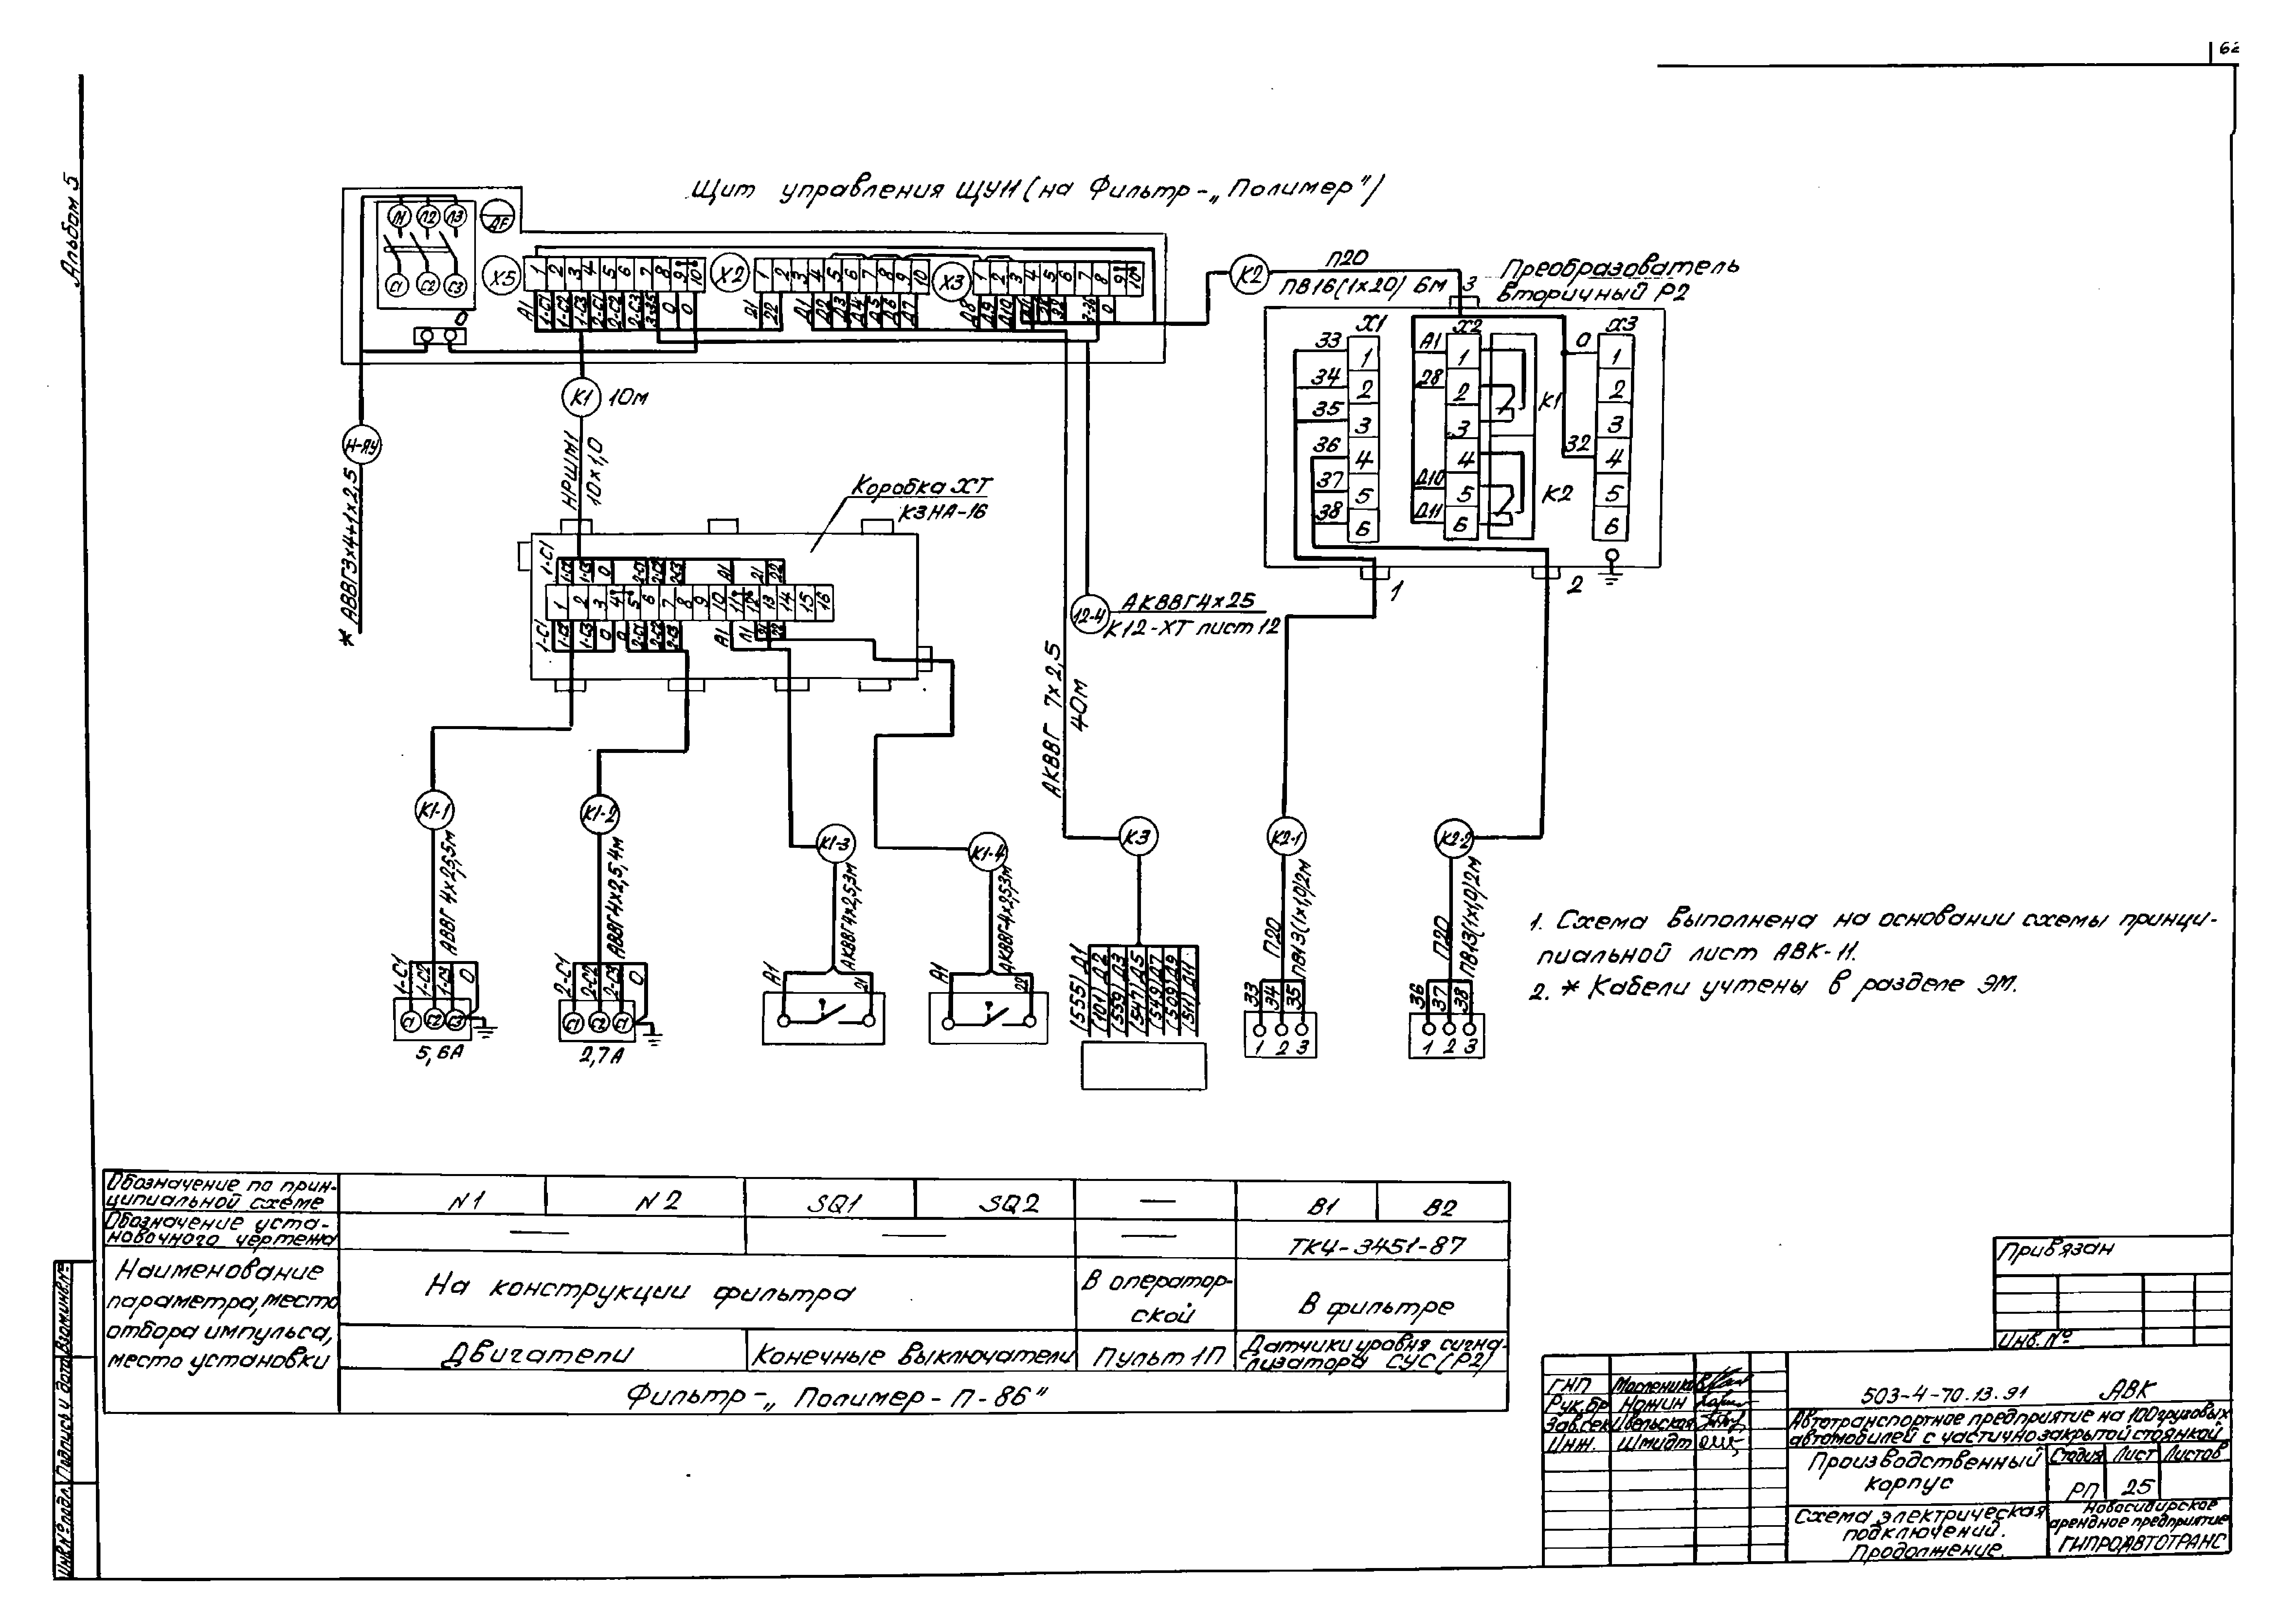 62
Альбом 5
Щит управления ЩУН (на Фильтр-„Полимер")
Л1 Л2 Л3
QF
С1 С2 С3
0
X5
1 2 3 4 5 6 7 8 9 10
А1 1-С1 1-С2 1-С3 2-С1 2-С2 2-С3 3-35 0 0
X2
1 2 3 4 5 6 7 8 9 10
21 22 Д1 Д2 Д3 Д4 Д5 Д6 Д7
X3
1 2 3 4 5 6 7 8 9 10
Д8 Д9 Д10 3-36 0
К2
П20
ПВ 16(1х20) 6м
3
Преобразователь
вторичный Р2
X1
33 1
34 2
35 3
36 4
37 5
38 6
X2
А1 1
Д8 2
3
4
Д10 5
Д11 6
К1
К2
X3
0 1
2
3
32 4
5
6
1
2
К1
10м
НРШМ1
10х1,0
Н-ЯУ
* АВВГ3х4+1х2,5
Коробка ХТ
КЗНА-16
1-С1 1-С2 1-С3 0 2-С1 2-С2 2-С3 А1 21 22
1 2 3 4 5 6 7 8 9 10 11 12 13 14 15 16
1-С1 1-С2 1-С3 0 0 2-С1 2-С2 2-С3 А1 Л1 21 22
12-4
АКВВГ4х25
К12-ХТ лист 12
АКВВГ 7х2,5
40м
К1-1
АВВГ 4х2,5,5м
К1-2
АВВГ4х2,5,4м
К1-3
АКВВГ4х2,5,3м
К1-4
АКВВГ-4х2,5,3м
К3
К2-1
П20
ПВ13(1х1,0)2м
К2-2
П20
ПВ13(1х1,0)2м
1-С1 1-С2 1-С3 0
С1 С2 С3
5,6А
2-С1 2-С2 2-С3 0
С1 С2 С1
2,7А
А1 21
А1 22
(555) Д1
(101) Д2
(559) Д3
(547) Д5
(549) Д7
(509) Д9
(511) Д11
33 34 35
1 2 3
36 37 38
1 2 3
1. Схема выполнена на основании схемы принци-
пиальной лист АВК-11.
2. * Кабели учтены в разделе ЭМ.
Обозначение по прин-
ципиальной схеме
N1 N2 SQ1 SQ2 — В1 В2
Обозначение уста-
новочного чертежа
— — — ТК4-3451-87
Наименование
параметра, место
отбора импульса,
место установки
На конструкции фильтра
В оператор-
ской
В фильтре
Двигатели
Конечные выключатели
Пульт 1П
Датчики уровня сигна-
лизатора СУС (Р2)
Фильтр-„Полимер-П-86"
Привязан
Инв.№
ГНП Масленников
Рук.бр Ножин
Зав.сек Цвельская
Инж. Шмидт
503-4-70.13.91 АВК
Автотранспортное предприятие на 100 грузовых
автомобилей с частично закрытой стоянкой
Производственный
корпус
Стадия Лист Листов
РП 25
Схема электрическая
подключений.
Продолжение.
Новосибирское
арендное предприятие
ГИПРОАВТОТРАНС
Инв.№подл. Подпись и дата Взам.инв.№